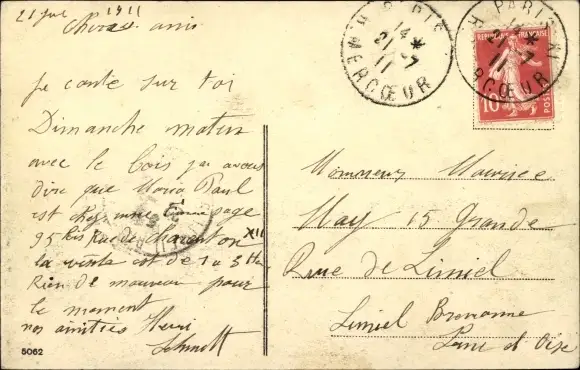 21 Jul 1911
Cher ami
Je conte sur toi
Dimanche matin
avec le bois j'ai
dire que Maria Paul
est chez une
95 bis rue de Charenton XII
la visite est de 1 a 3 H
Rien de nouveau pour
le moment
nos amitiés Henri
Schmitt
5062
PARIS
14 *
21 - 7
11
R. MERCŒUR
PARIS XI
14 *
21 - 7
11
R. MERCŒUR
REPUBLIQUE FRANÇAISE
10
POSTES
Monsieur Maurice
May 15 Grande
Rue de Limeil
Limeil Brevanne
Seine et Oise